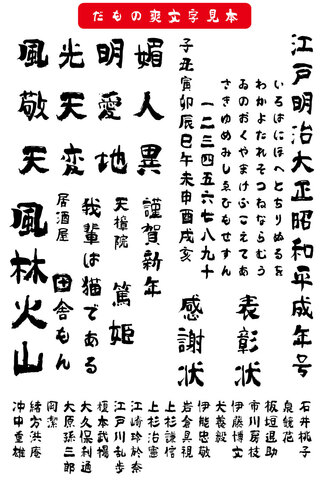 だもの爽文字見本
江戸明治大正昭和平成年号
いろはにほへとちりぬるを
わかよたれそつねならむう
ゐのおくやまけふこえてあ
さきゆめみしゑひもせすん
一二三四五六七八九十
子丑寅卯辰巳午未申酉戌亥
表彰状
感謝状
媚人異
明愛地
光天変
風敬天
謹賀新年
天璋院
篤姫
我輩は猫である
居酒屋
田舎もん
風林火山
石井桃子
泉鏡花
板垣退助
市川房枝
伊藤博文
犬養毅
伊能忠敬
岩倉具視
上杉謙信
上杉治憲
江崎玲於奈
江戸川乱歩
榎本武揚
大久保利通
大原孫三郎
岡潔
緒方洪庵
沖中重雄